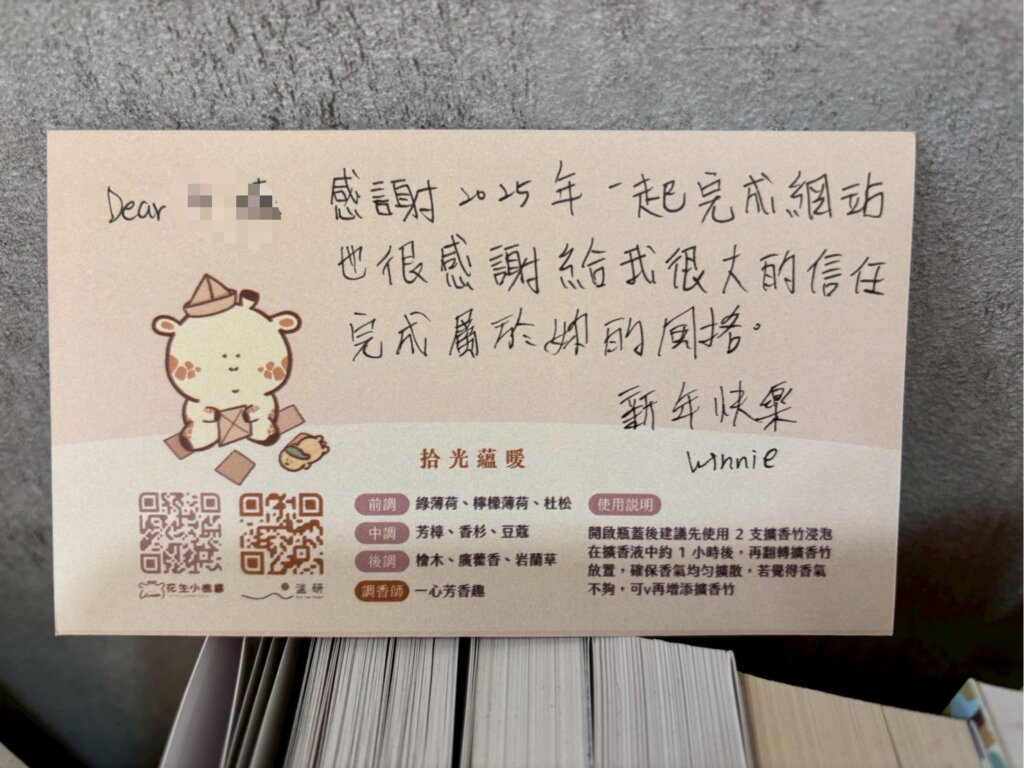 Dear
感謝 2025 年 一起完成網站
也很感謝給我很大的信任
完成屬於妳的風格。
新年快樂
Winnie
拾光蘊暖
前調 綠薄荷、檸檬薄荷、杜松
中調 芳樟、香杉、豆蔻
後調 檜木、廣藿香、岩蘭草
調香師 一心芳香趣
使用説明
開啟瓶蓋後建議先使用 2 支擴香竹浸泡
在擴香液中約 1 小時後，再翻轉擴香竹
放置，確保香氣均勻擴散，若覺得香氣
不夠，可v再增添擴香竹